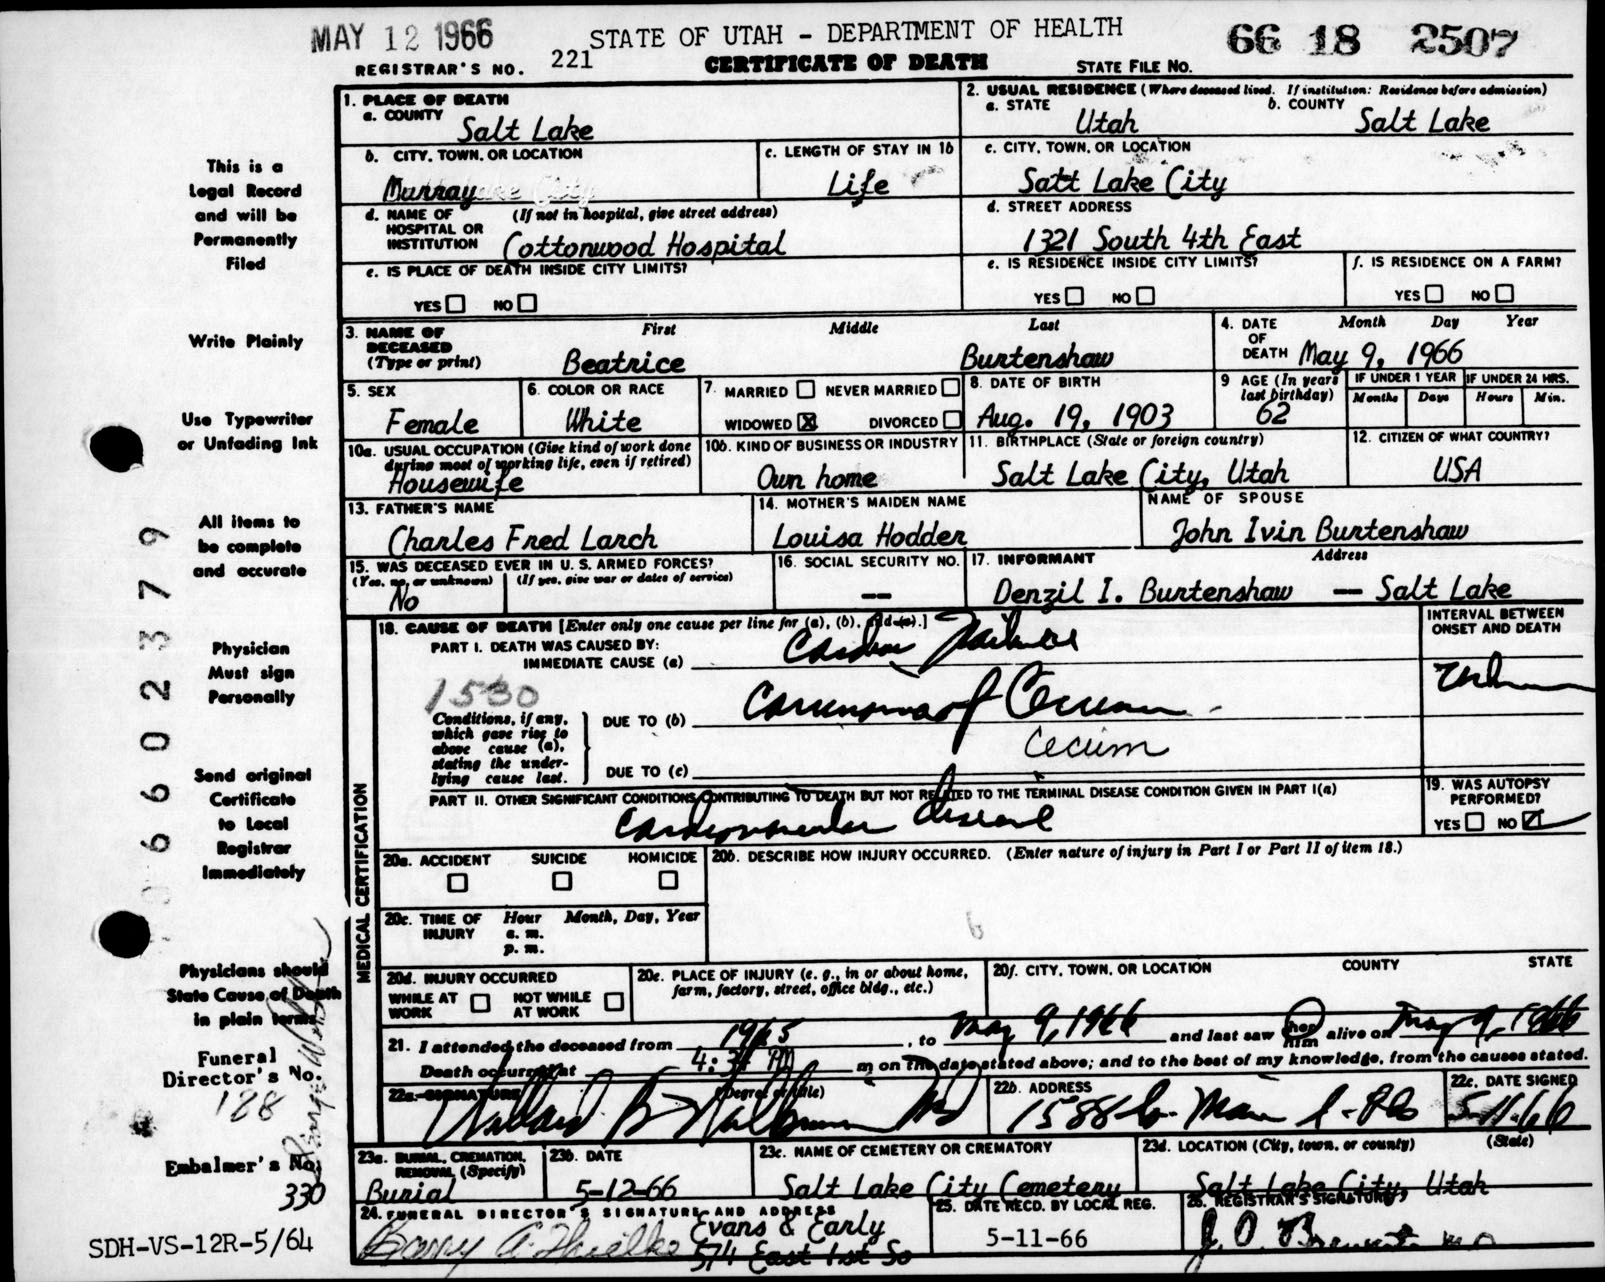 MAY 12 1966
STATE OF UTAH - DEPARTMENT OF HEALTH
66 18 2507
REGISTRAR'S NO. 221
CERTIFICATE OF DEATH
STATE FILE NO.
1. PLACE OF DEATH
a. COUNTY
Salt Lake
2. USUAL RESIDENCE (Where deceased lived. If institution: Residence before admission)
a. STATE
Utah
b. COUNTY
Salt Lake
b. CITY, TOWN, OR LOCATION
Murray
c. LENGTH OF STAY IN 1b
Life
c. CITY, TOWN, OR LOCATION
Salt Lake City
d. NAME OF HOSPITAL OR INSTITUTION
(If not in hospital, give street address)
Cottonwood Hospital
d. STREET ADDRESS
1321 South 4th East
e. IS PLACE OF DEATH INSIDE CITY LIMITS?
YES NO
e. IS RESIDENCE INSIDE CITY LIMITS?
YES NO
f. IS RESIDENCE ON A FARM?
YES NO
3. NAME OF DECEASED (Type or print)
First Middle Last
Beatrice Burtenshaw
4. DATE OF DEATH
Month Day Year
May 9, 1966
5. SEX
Female
6. COLOR OR RACE
White
7. MARRIED NEVER MARRIED
WIDOWED X DIVORCED
8. DATE OF BIRTH
Aug. 19, 1903
9 AGE (In years last birthday)
62
IF UNDER 1 YEAR
Months Days
IF UNDER 24 HRS.
Hours Min.
10a. USUAL OCCUPATION (Give kind of work done during most of working life, even if retired)
Housewife
10b. KIND OF BUSINESS OR INDUSTRY
Own home
11. BIRTHPLACE (State or foreign country)
Salt Lake City, Utah
12. CITIZEN OF WHAT COUNTRY?
USA
13. FATHER'S NAME
Charles Fred Larch
14. MOTHER'S MAIDEN NAME
Louisa Hodder
NAME OF SPOUSE
John Ivin Burtenshaw
15. WAS DECEASED EVER IN U. S. ARMED FORCES?
(Yes, no, or unknown) (If yes, give war or dates of service)
No
16. SOCIAL SECURITY NO.
--
17. INFORMANT Address
Denzil I. Burtenshaw -- Salt Lake
MEDICAL CERTIFICATION
18. CAUSE OF DEATH [Enter only one cause per line for (a), (b), and (c).]
PART I. DEATH WAS CAUSED BY:
IMMEDIATE CAUSE (a)
Cardiac Failure
INTERVAL BETWEEN ONSET AND DEATH
1530
Conditions, if any, which gave rise to above cause (a), stating the underlying cause last.
DUE TO (b)
Carcinoma of Cecum
Cecum
DUE TO (c)
PART II. OTHER SIGNIFICANT CONDITIONS CONTRIBUTING TO DEATH BUT NOT RELATED TO THE TERMINAL DISEASE CONDITION GIVEN IN PART I(a)
Cardiovascular disease
19. WAS AUTOPSY PERFORMED?
YES NO
20a. ACCIDENT SUICIDE HOMICIDE
20b. DESCRIBE HOW INJURY OCCURRED. (Enter nature of injury in Part I or Part II of item 18.)
20c. TIME OF INJURY
Hour Month, Day, Year
a. m.
p. m.
20d. INJURY OCCURRED
WHILE AT WORK NOT WHILE AT WORK
20e. PLACE OF INJURY (e. g., in or about home, farm, factory, street, office bldg., etc.)
20f. CITY, TOWN, OR LOCATION COUNTY STATE
21. I attended the deceased from 1965, to May 9, 1966 and last saw her him alive on May 9, 1966
Death occurred at 4:31 PM m on the date stated above; and to the best of my knowledge, from the causes stated.
22a. SIGNATURE (Degree or title)
Willard
22b. ADDRESS
1588 So. Main
22c. DATE SIGNED
5-11-66
23a. BURIAL, CREMATION, REMOVAL (Specify)
Burial
23b. DATE
5-12-66
23c. NAME OF CEMETERY OR CREMATORY
Salt Lake City Cemetery
23d. LOCATION (City, town, or county) (State)
Salt Lake City, Utah
24. FUNERAL DIRECTOR'S SIGNATURE AND ADDRESS
Evans & Early
574 East 1st So
25. DATE RECD. BY LOCAL REG.
5-11-66
26. REGISTRAR'S SIGNATURE
J. O.
This is a
Legal Record
and will be
Permanently
Filed
Write Plainly
Use Typewriter
or Unfading Ink
All items to
be complete
and accurate
Physician
Must sign
Personally
Send original
Certificate
to Local
Registrar
Immediately
Physicians should
State Cause of Death
in plain terms
Funeral
Director's No.
188
Embalmer's No.
330
SDH-VS-12R-5/64
6602379